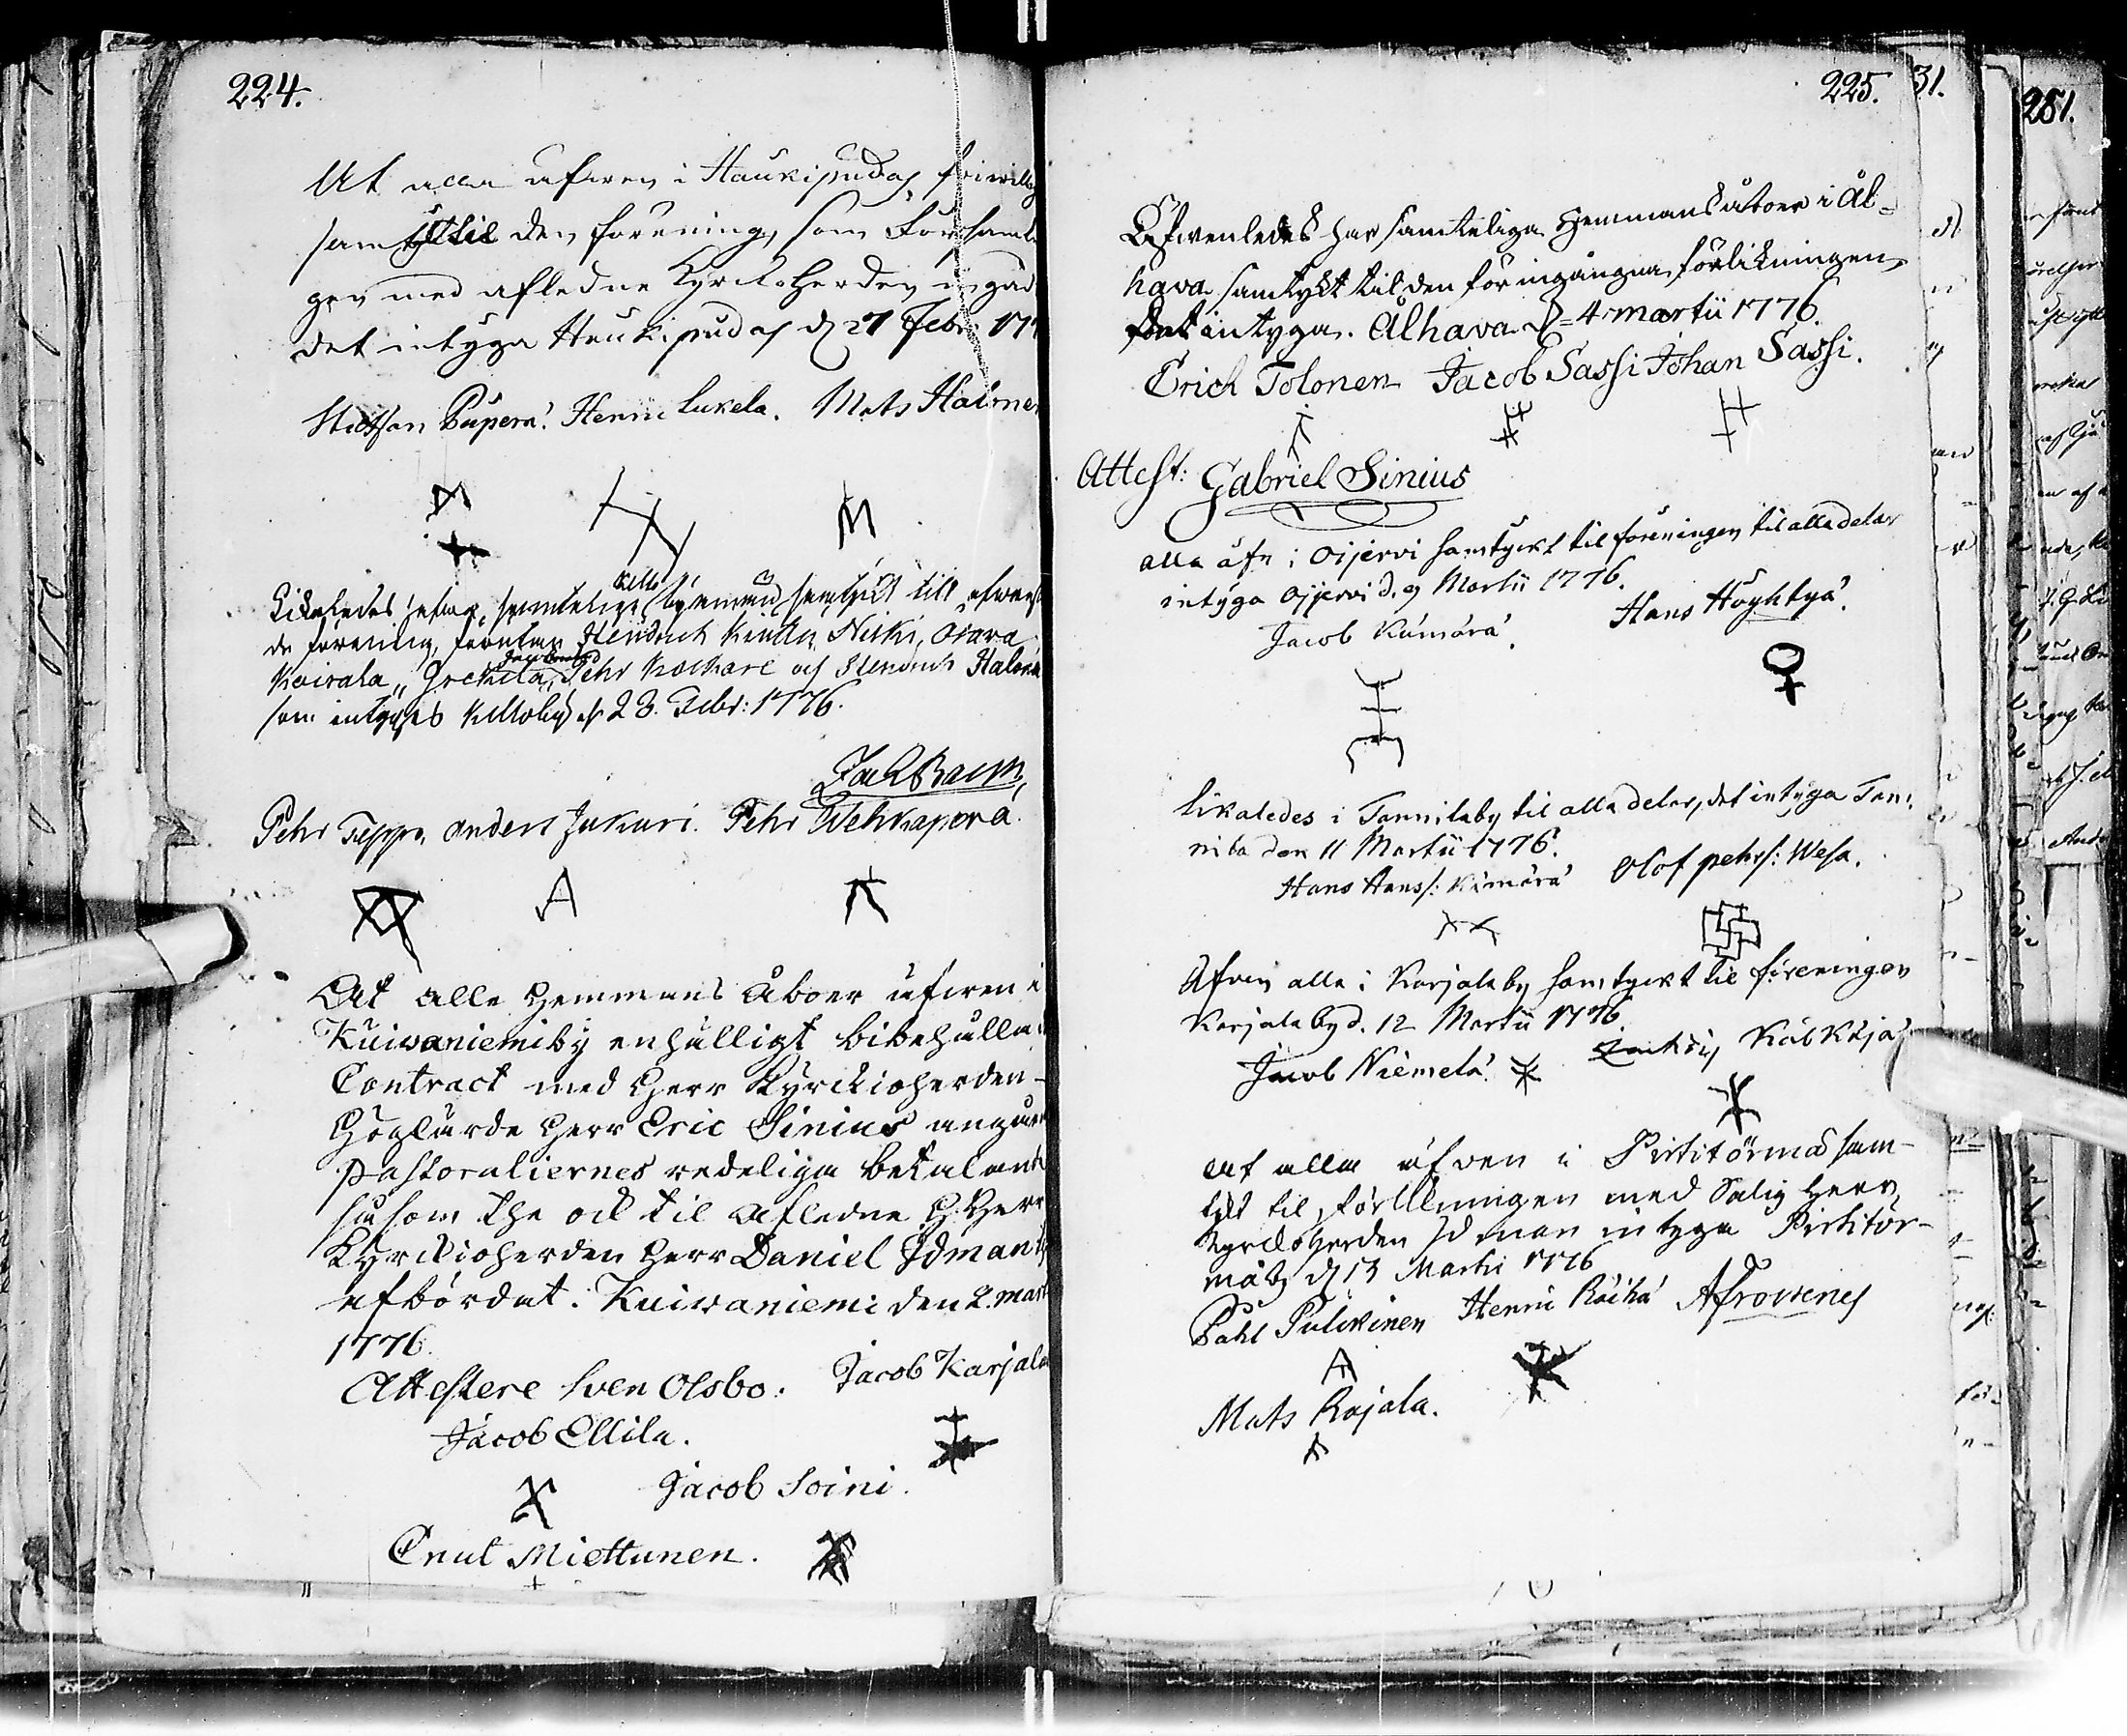 224.
At alla äfwen i Haukipudas friwillig
samtykt til den förening, som Församl
gen med afledne Kyrckoherden ingåd
det intyga Haukipudas d 27 Febr: 177
Staffan Püperä. Henric Lukela. Mats Halone
Likaledes hafwa samtelige Kello byamänd samtyckt till ofwanst
de förening, förutan Hendrich Kinttu, Niski, Ojava
Koirala, Grekila, Pehr Kockare och Hendrich Halone
som intyges Kelloby d 28. Febr: 1776.
Pehr Teppo. Anders Jukuri. Pehr Wehkaperä.
At alle Hemmans Åboer äfwen i
Kuiwaniemiby enhälligt bibehålla
Contract med Herr Kyrckioherden
Höglärde Herr Eric Sinius angåen
Pastoraliernes redeliga betalant
såsom the ock til Afledne H: Herr
Kyrckioherden Herr Daniel Idman
afbördat. Kuiwaniemi den 2. mart
1776.
Attestere Sven Olsbo. Jacob Karjala
Jacob Ellila.
Jacob Soini.
Cnut Miettunen.
225.
Äfwenledes har samteliga Hemmansåboer i Ål=
hava samtykt til den för ingångna förlikningen,
det intyga. Ålhava d=4 martii 1776.
Erich Tolonen Jacob Sassi Johan Sassi.
Attest: Gabriel Sinius
alla äfv i Oijervi samtyckt til föreningen til alla delar
intyga Oijervi d. 9 Martii 1776.
Jacob Kämärä. Hans Höyhtyä.
Likaledes i Tannilaby til alla delar, det intyga Tan:
nila den 11 Martii 1776.
Hans Hans/: Kämärä Olof pehrs/: Wesa.
Äfven alla i Karjalaby samtyckt til föreningen
Karjalaby d. 12 Martii 1776.
Jacob Niemelä.
At alla äfven i Pirtitörmä sam-
tykt til förlikningen med Salig Herr
Kyrckoherden Idman intyga Pirtitör-
mäby d 13 Martii 1776
Påhl Pulkinen Henric Räihä A Frosenes
Mats Rajala.
31.
281.